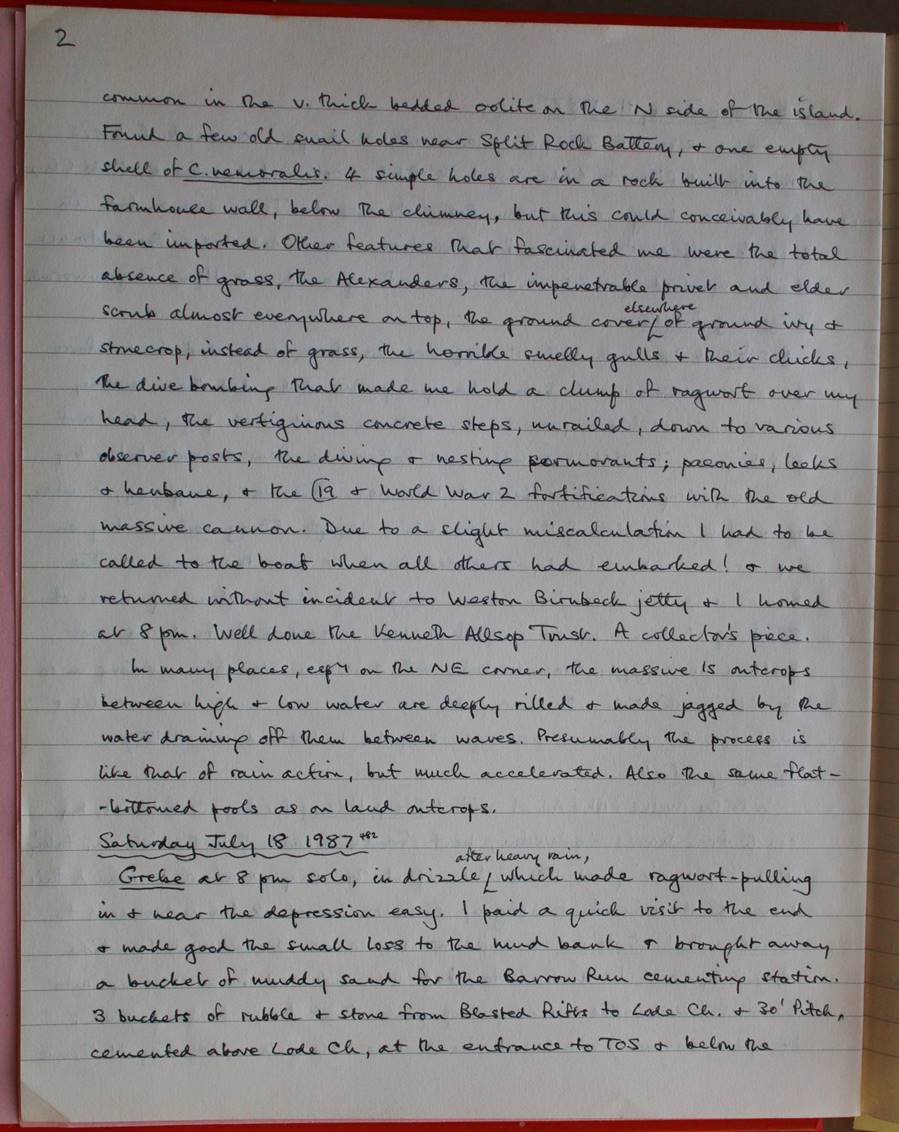 2
common in the v. thick bedded oolite on the N side of the island.
Found a few old snail holes near Split Rock Battery, & one empty
shell of C. nemoralis. 4 simple holes are in a rock built into the
farmhouse wall, below the chimney, but this could conceivably have
been imported. Other features that fascinated me were the total
absence of grass, the Alexanders, the impenetrable privet and elder
elsewhere
scrub almost everywhere on top, the ground cover of ground ivy &
stonecrop, instead of grass, the horrible smelly gulls & their chicks,
the dive bombing that made me hold a clump of ragwort over my
head, the vertiginous concrete steps, unrailed, down to various
observer posts, the diving & nesting cormorants; paeonies, leeks
& henbane, & the 19 & World War 2 fortifications with the old
massive cannon. Due to a slight miscalculation I had to be
called to the boat when all others had embarked! & we
returned without incident to Weston Birnbeck jetty & I homed
at 8 pm. Well done the Kenneth Allsop Trust. A collector's piece.
In many places, esp'y on the NE corner, the massive ls outcrops
between high & low water are deeply rilled & made jagged by the
water draining off them between waves. Presumably the process is
like that of rain action, but much accelerated. Also the same flat-
-bottomed pools as on land outcrops.
Saturday July 18 1987 482
after heavy rain,
Grebe at 8 pm solo, in drizzle which made ragwort-pulling
in & near the depression easy. I paid a quick visit to the end
& made good the small loss to the mud bank & brought away
a bucket of muddy sand for the Barrow Run cementing station.
3 buckets of rubble & stone from Blasted Rifts to Lode Ch. & 30' Pitch,
cemented above Lode Ch, at the entrance to TOS & below the